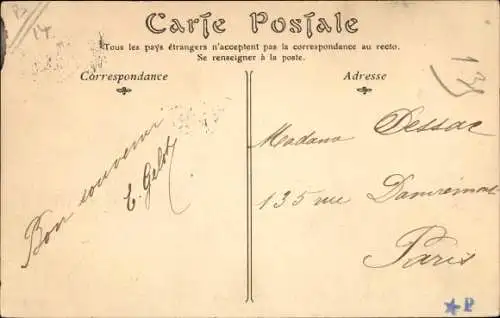 Carte Postale
Tous les pays étrangers n'acceptent pas la correspondance au recto.
Se renseigner à la poste.
Correspondance
Adresse
Bon souvenir
E. Gelot
Madame Dessac
135 rue Damrémont
Paris
P